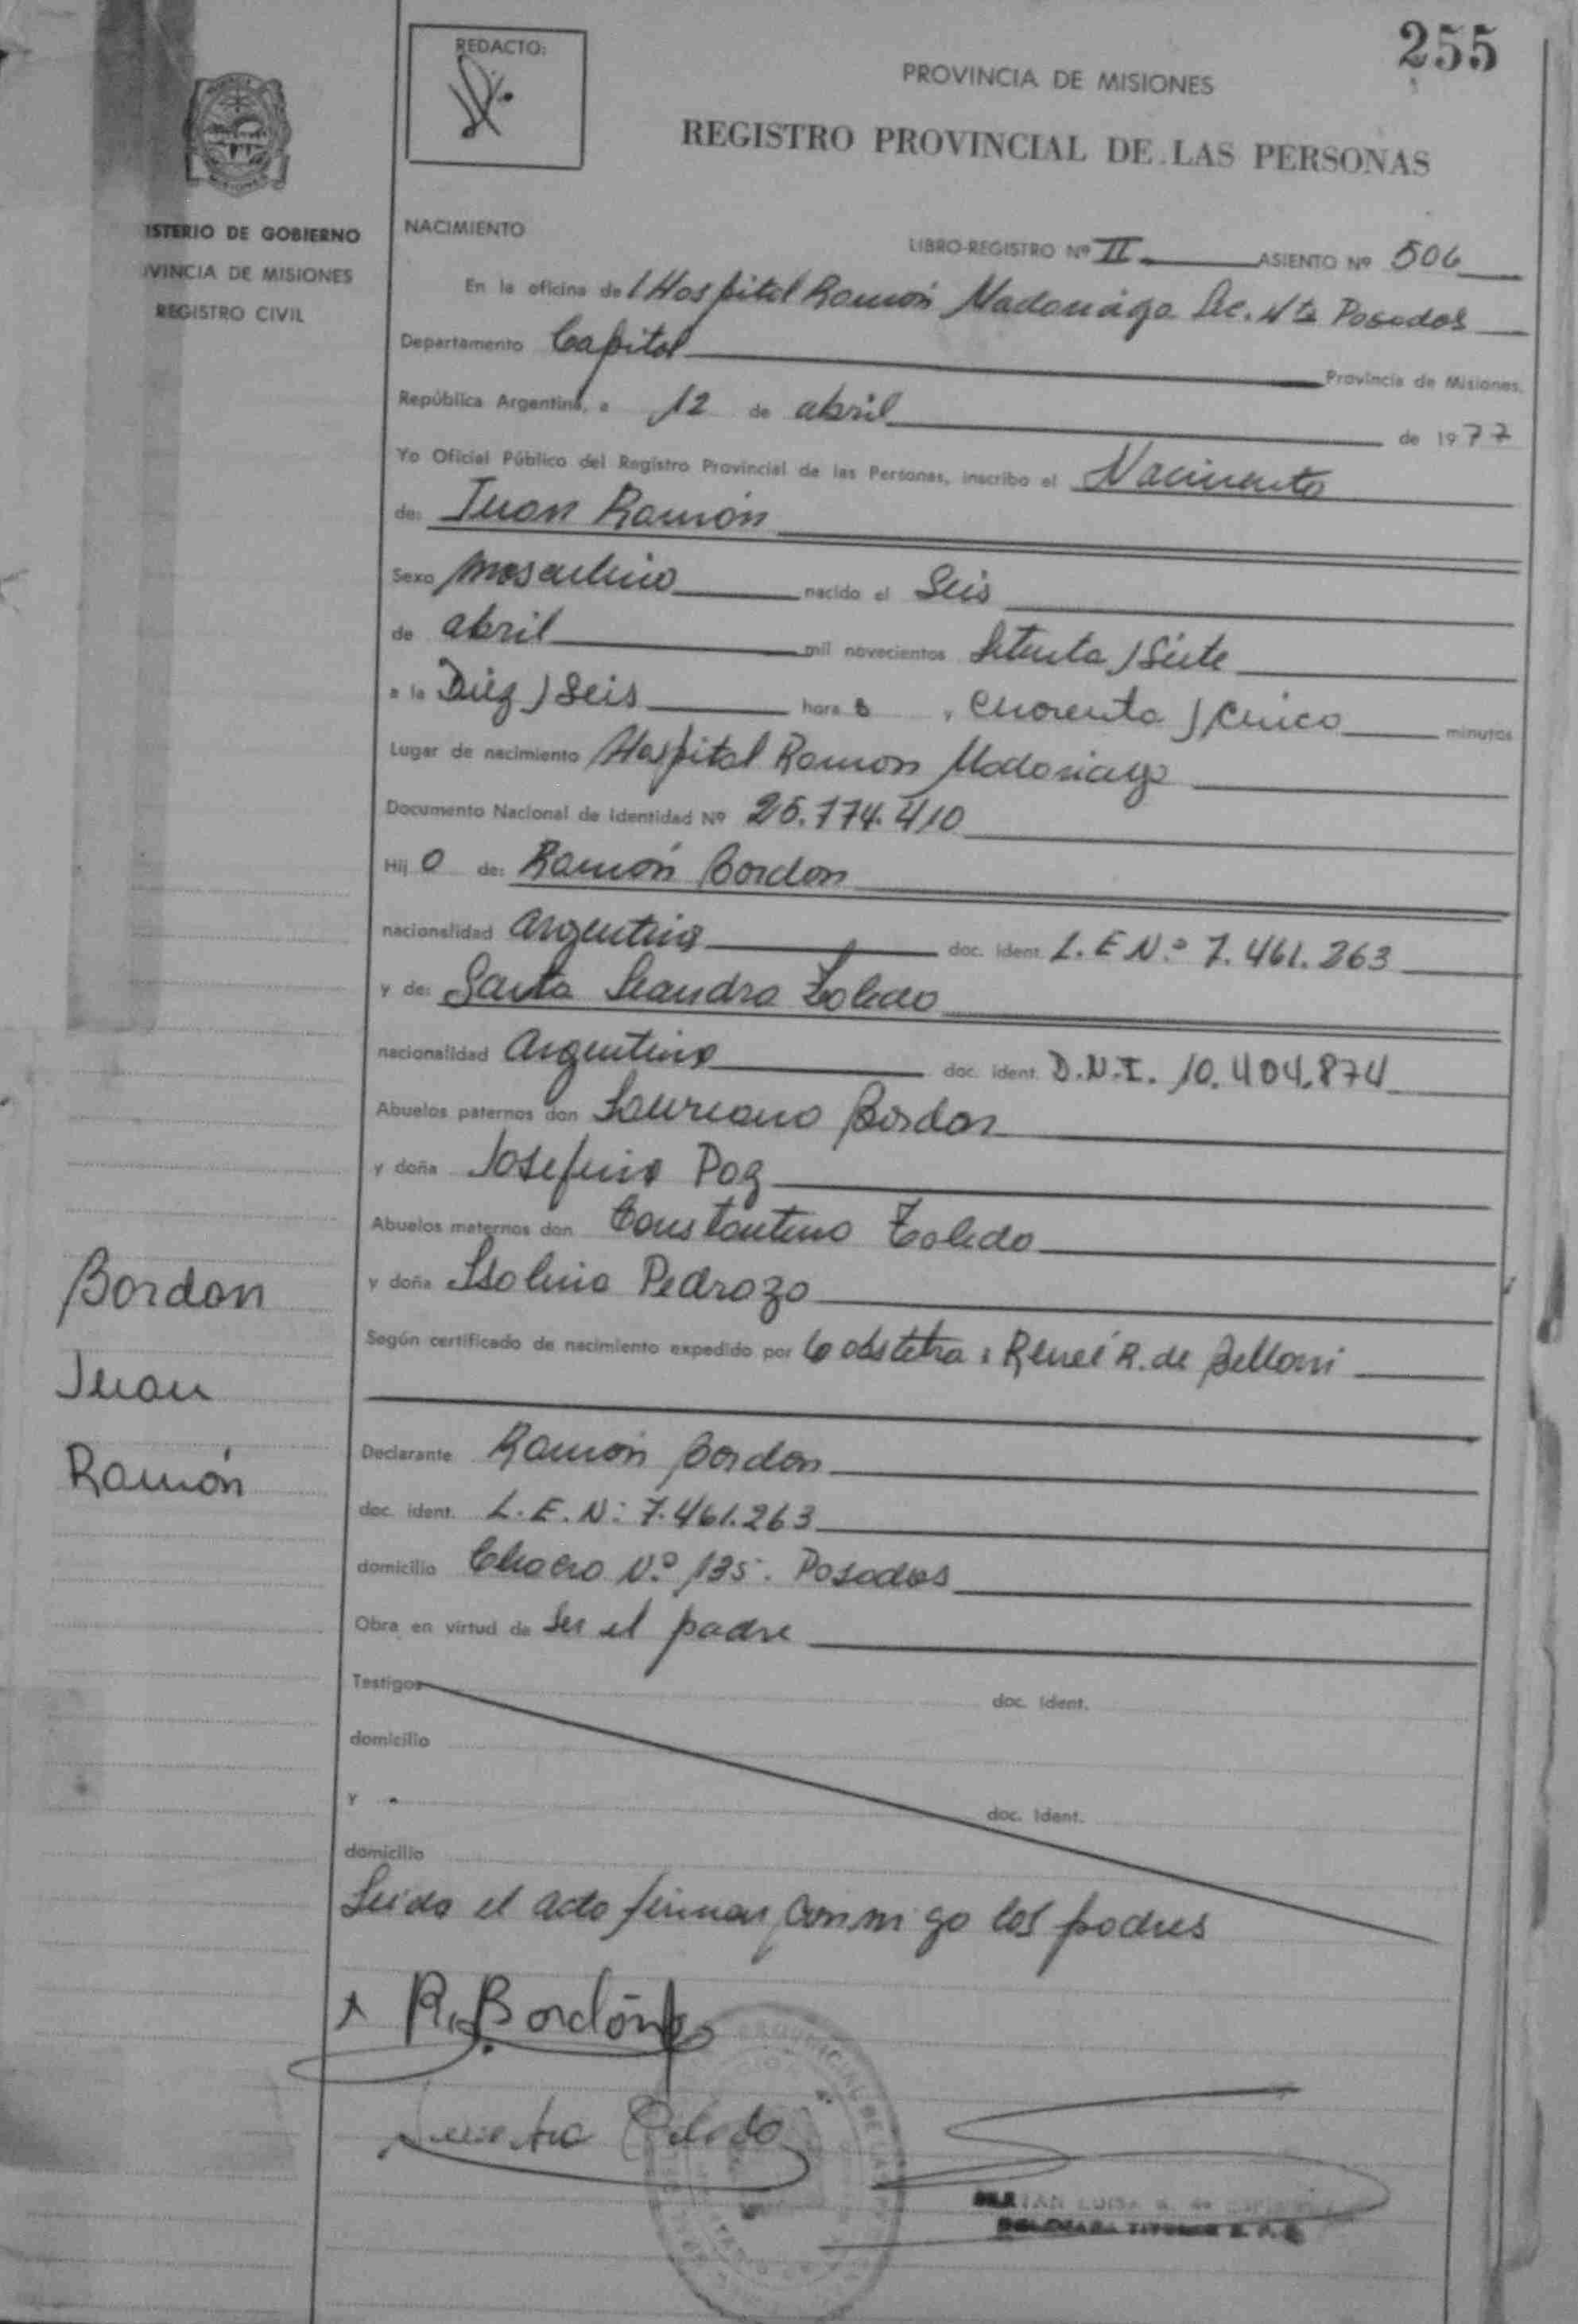 255
REDACTO:
PROVINCIA DE MISIONES
REGISTRO PROVINCIAL DE LAS PERSONAS
ISTERIO DE GOBIERNO
VINCIA DE MISIONES
REGISTRO CIVIL
NACIMIENTO
LIBRO-REGISTRO Nº II ASIENTO Nº 506
En la oficina de l Hospital Ramón Madariaga Sec. 4ta Posadas
Departamento Capital Provincia de Misiones.
República Argentina, a 12 de abril de 1977
Yo Oficial Público del Registro Provincial de las Personas, inscribo el Nacimiento
de: Juan Ramón
Sexo masculino nacido el Seis
de abril mil novecientos Setenta y Siete
a la Diez y Seis hora s, cuarenta y cinco minutos
Lugar de nacimiento Hospital Ramon Madariaga
Documento Nacional de Identidad Nº 25.174.410
Hij o de: Ramón Bordon
nacionalidad argentina doc. ident. L. E Nº 7.461.263
y de: Santa Leandra Toledo
nacionalidad argentina doc. ident. D.N.I. 10.404.874
Abuelos paternos don Laureano Bordon
y doña Josefina Paz
Abuelos maternos don Constantino Toledo
y doña Isolina Pedrozo
Según certificado de nacimiento expedido por la obstetra: Reneé R. de Belloni
Declarante Ramón Bordon
doc. ident. L. E. N: 7.461.263
domicilio Chacra Nº 135. Posadas
Obra en virtud de ser el padre
Testigos doc. ident.
domicilio
y doc. ident.
domicilio
Leida el acta firman conmigo los padres
Bordon
Juan
Ramón
R. Bordón
Toledo